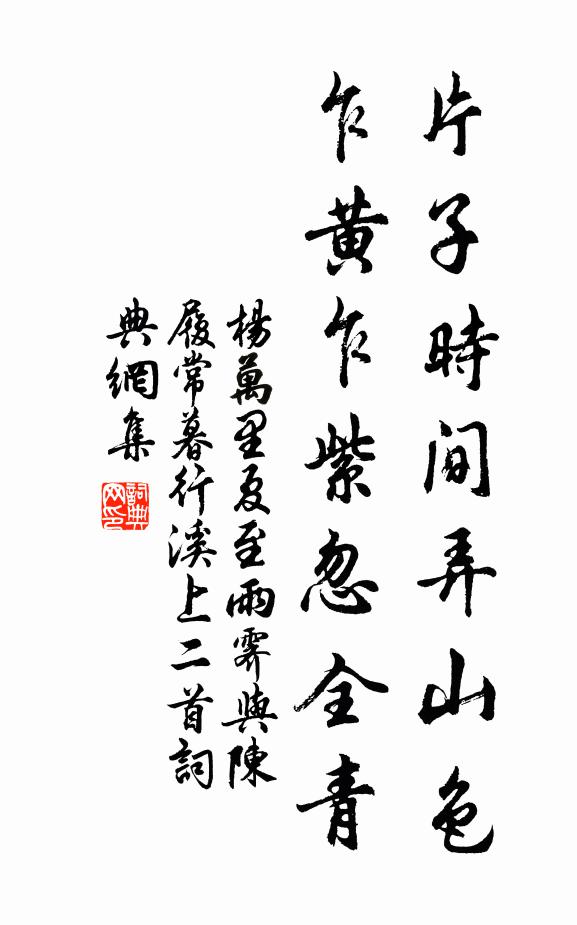 片子時間弄山色
乍黃乍紫忽全青
楊萬里夏至雨霽與陳
履常暮行溪上二首詞
典網集
詞典
网印